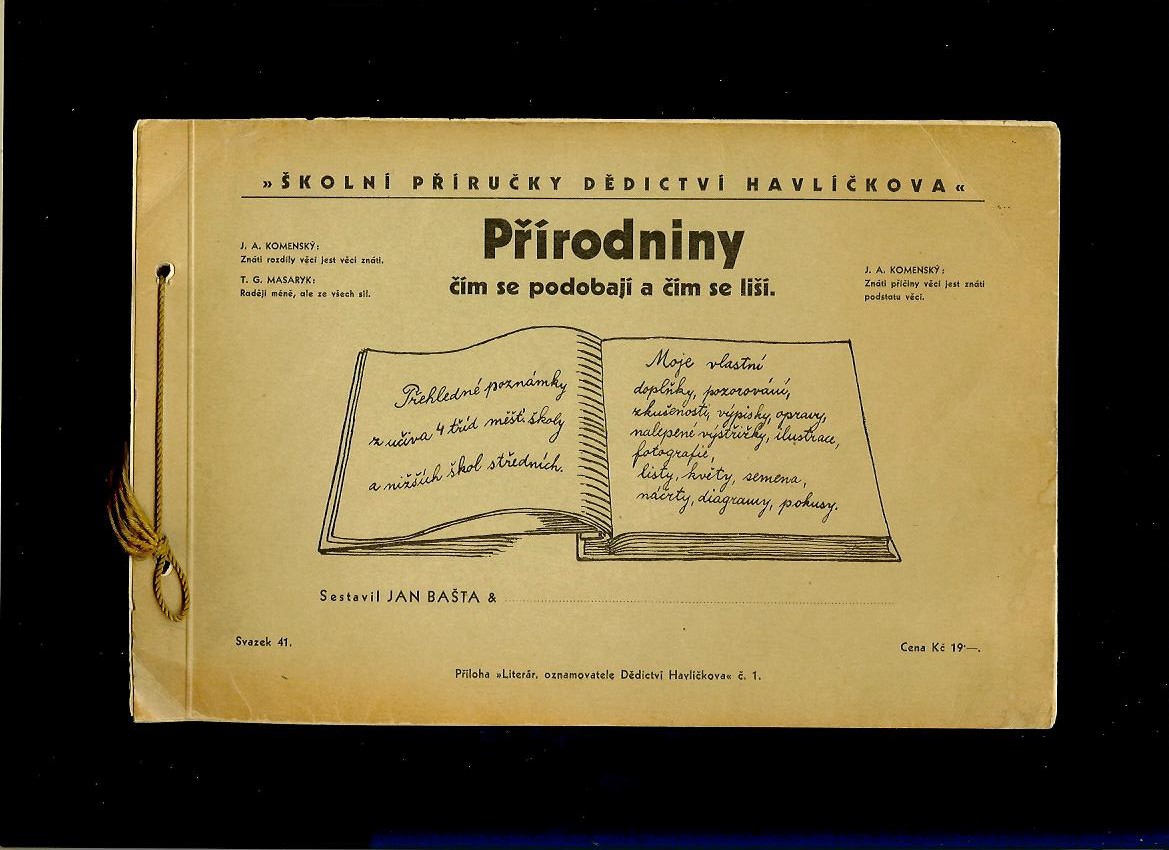 »ŠKOLNÍ PŘÍRUČKY DĚDICTVÍ HAVLÍČKOVA«
Přírodniny
čím se podobají a čím se liší.
J. A. KOMENSKÝ:
Znáti rozdíly věcí jest věci znáti.
T. G. MASARYK:
Raději méně, ale ze všech sil.
J. A. KOMENSKÝ:
Znáti příčiny věcí jest znáti
podstatu věcí.
Přehledné poznámky
z učiva 4 tříd měšť. školy
a nižších škol středních.
Moje vlastní
doplňky, pozorování,
zkušenosti, výpisky, opravy,
nalepené výstřižky, ilustrace,
fotografie,
listy, květy, semena,
náčrty, diagramy, pokusy.
Sestavil JAN BAŠTA &
Svazek 41.
Cena Kč 19·—.
Příloha »Literár. oznamovatele Dědictví Havlíčkova« č. 1.